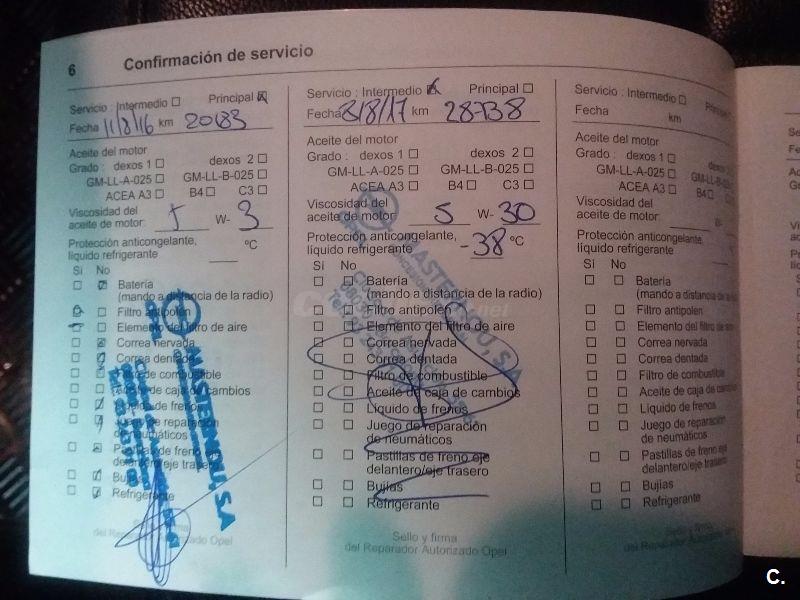 6 Confirmación de servicio
Servicio : Intermedio Principal
Fecha 11/8/16 km 20183
Aceite del motor
Grado : dexos 1 dexos 2
GM-LL-A-025 GM-LL-B-025
ACEA A3 B4 C3
Viscosidad del
aceite de motor: 5 W- 3
Protección anticongelante,
líquido refrigerante °C
Sí No
Batería
(mando a distancia de la radio)
Filtro antipolen
Elemento del filtro de aire
Correa nervada
Correa dentada
de combustible
de caja de cambios
de frenos
de reparación
neumáticos
Pastillas de freno
delantero/eje trasero
Bujías
Refrigerante
ASTENOU, S.A
Sello y firma
del Reparador Autorizado Opel
Servicio : Intermedio Principal
Fecha 8/8/17 km 28738
Aceite del motor
Grado : dexos 1 dexos 2
GM-LL-A-025 GM-LL-B-025
ACEA A3 B4 C3
Viscosidad del
aceite de motor: 5 W- 30
Protección anticongelante,
líquido refrigerante -38 °C
Sí No
Batería
(mando a distancia de la radio)
Filtro antipolen
Elemento del filtro de aire
Correa nervada
Correa dentada
Filtro de combustible
Aceite de caja de cambios
Líquido de frenos
Juego de reparación
de neumáticos
Pastillas de freno eje
delantero/eje trasero
Bujías
Refrigerante
ASTENOU, S.A
Sello y firma
del Reparador Autorizado Opel
Servicio : Intermedio Principal
Fecha km
Aceite del motor
Grado : dexos 1 dexos
GM-LL-A-025 GM-LL-B-025
ACEA A3 B4
Viscosidad del
aceite de motor:
Protección anticongelante,
líquido refrigerante
Sí No
Batería
(mando a distancia de la
Filtro antipolen
Elemento del filtro de aire
Correa nervada
Correa dentada
Filtro de combustible
Aceite de caja de cambios
Líquido de frenos
Juego de reparación
de neumáticos
Pastillas de freno eje
delantero/eje trasero
Bujías
Refrigerante
Sello y firma
del Reparador Autorizado
C.